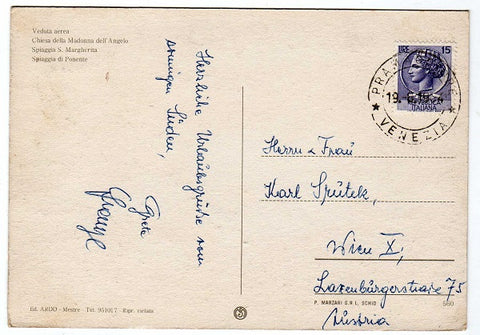 Veduta aerea
Chiesa della Madonna dell'Angelo
Spiaggia S. Margherita
Spiaggia di Ponente
Herzliche Urlaubsgrüße vom
sonnigen Süden,
Grete
LIRE 15
ITALIANA
VENEZIA
Herrn u Frau
Karl Spütek,
Wien X,
Laxenburgerstraße 75
Austria
P. MARZARI S.R.L. SCHIO
560
Ed. ARDO - Mestre Tel. 951017 Ripr. vietata